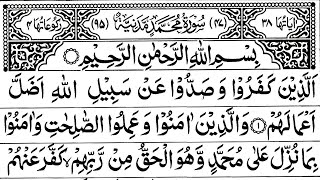 اٰیَاتُهَا ۳۸ (۴۷) سُوْرَةُ مُحَمَّدٍ مَّدَنِیَّةٌ (۹۵) رُكُوْعَاتُهَا ۴
بِسْمِ اللّٰهِ الرَّحْمٰنِ الرَّحِیْمِ ○
اَلَّذِیْنَ كَفَرُوْا وَ صَدُّوْا عَنْ سَبِیْلِ اللّٰهِ اَضَلَّ
اَعْمَالَهُمْ ۝۱ وَ الَّذِیْنَ اٰمَنُوْا وَ عَمِلُوا الصّٰلِحٰتِ وَ اٰمَنُوْا
بِمَا نُزِّلَ عَلٰى مُحَمَّدٍ وَّ هُوَ الْحَقُّ مِنْ رَّبِّهِمْ ۙ كَفَّرَ عَنْهُمْ